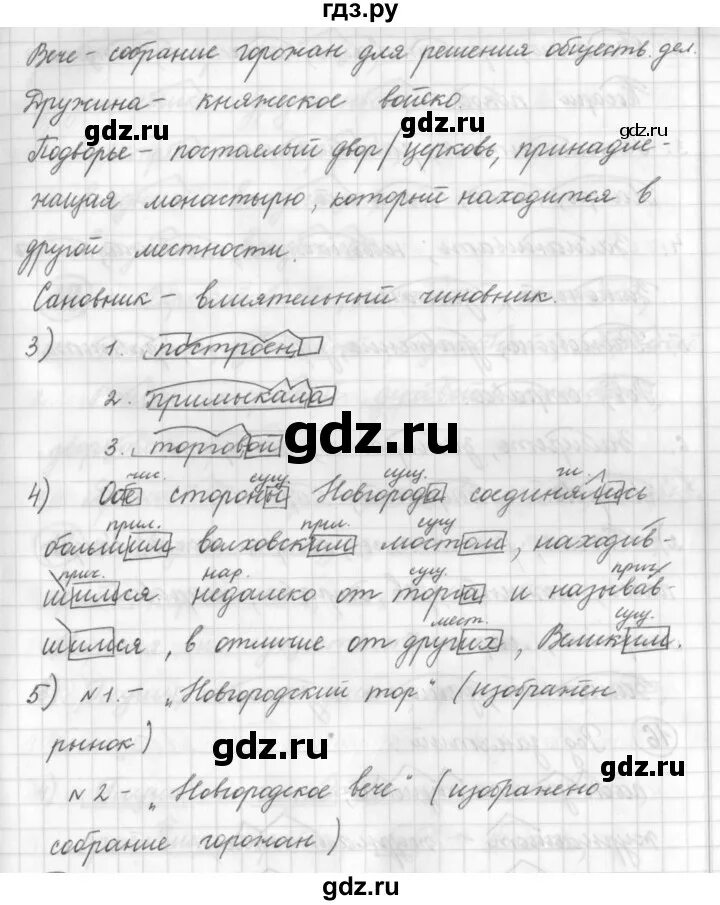 гдз.ру
Вече - собрание горожан для решения обществ. дел.
Дружина - княжеское войско.
gdz.ru gdz.ru gdz.ru
Подворье - постоялый двор/ церковь, принадле-
жащая монастырю, который находится в
другой местности.
Сановник - влиятельный чиновник.
3) 1. построен
2. примыкала
gdz.ru
3. торговой
чис. сущ. сущ. гл.
4) Обе стороны Новгорода соединялись
прил. прил. сущ
большим волховским мостом, находив-
прич. нар. сущ. прич
шимся недалеко от торга и называв-
мест. сущ.
шимся, в отличие от других, Великим.
5) №1. - „Новгородский тор" (изображён
рынок)
gdz.ru gdz.ru
№2 - „Новгородское вече" (изображено
собрание горожан)
gdz.ru